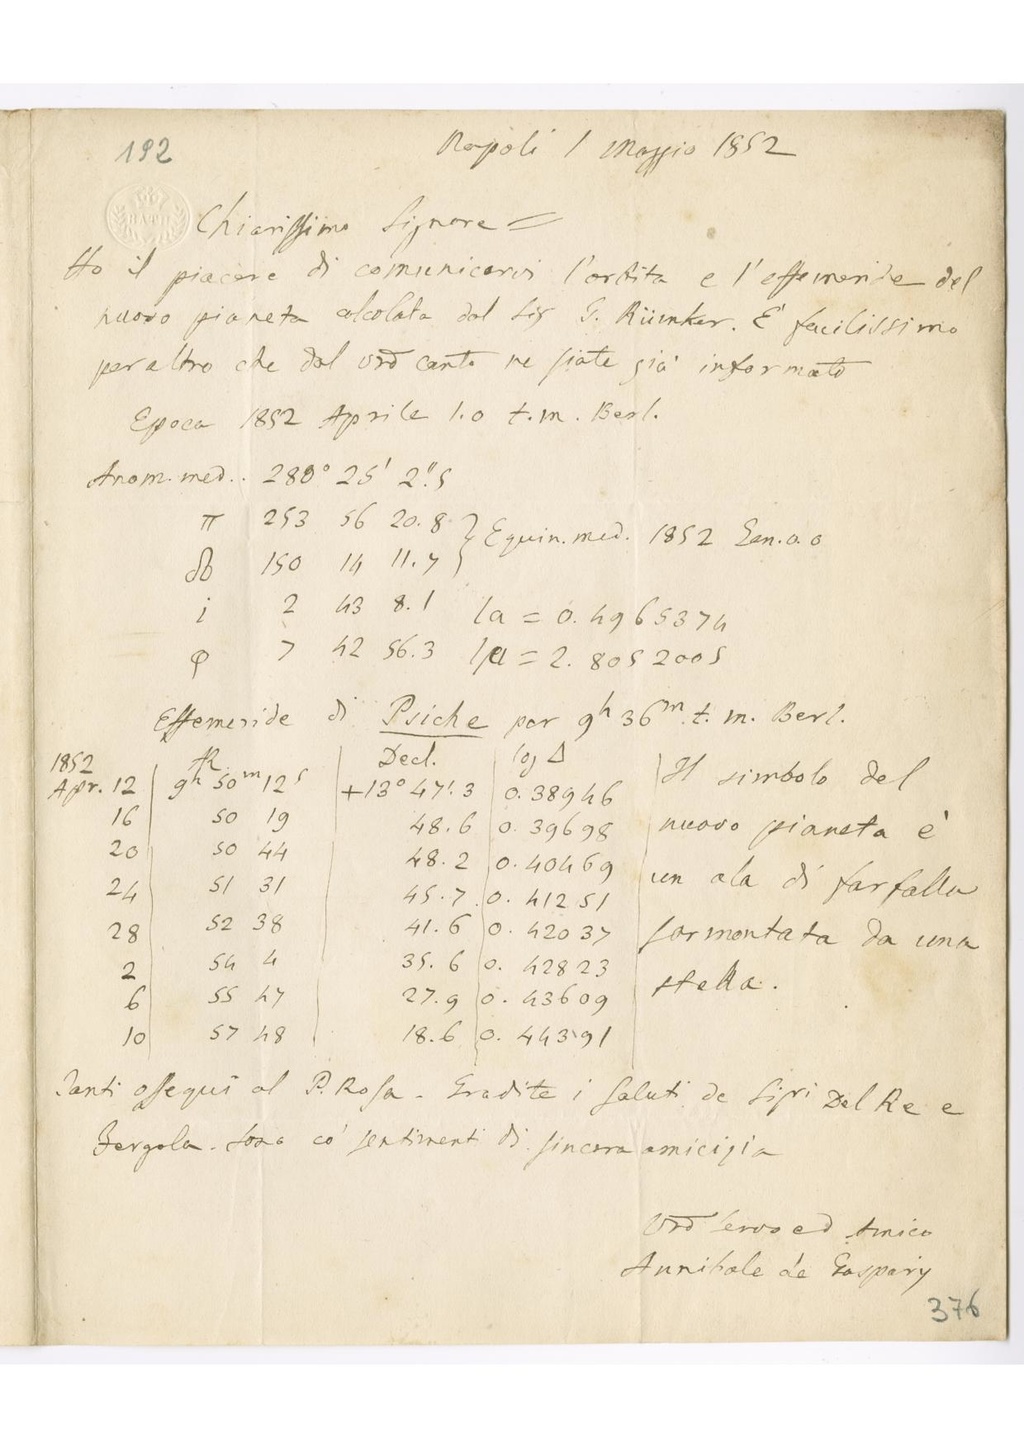 192
Napoli 1 Maggio 1852
Chiarissimo Signore =
Ho il piacere di comunicarvi l'orbita e l'effemeride del
nuovo pianeta calcolata dal Sig G. Rümker. È facilissimo
per altro che dal vro canto ne siate già informato
Epoca 1852 Aprile 1.0 t.m. Berl.
Anom. med.. 280° 25' 2".5
π 253 56 20.8 } Equin. med. 1852 Gen. 0.0
☊ 150 14 11.7
i 2 43 8.1 la = 0.4965374
φ 7 42 56.3 lμ = 2.8052005
Effemeride di Psiche per 9h 36m t. m. Berl.
1852 AR Decl. log Δ
Apr. 12 9h 50m 12s +13° 47'.3 0.38946
16 50 19 48.6 0.39698
20 50 44 48.2 0.40469
24 51 31 45.7 0.41251
28 52 38 41.6 0.42037
2 54 4 35.6 0.42823
6 55 47 27.9 0.43609
10 57 48 18.6 0.44391
Il simbolo del
nuovo pianeta è
un ala di farfalla
sormontata da una
stella.
Tanti ossequi al P. Rosa. Gradite i saluti de Sigri Del Re e
Fergola. Sono co' sentimenti di sincera amicizia
Vro servo ed Amico
Annibale de Gasparis
376